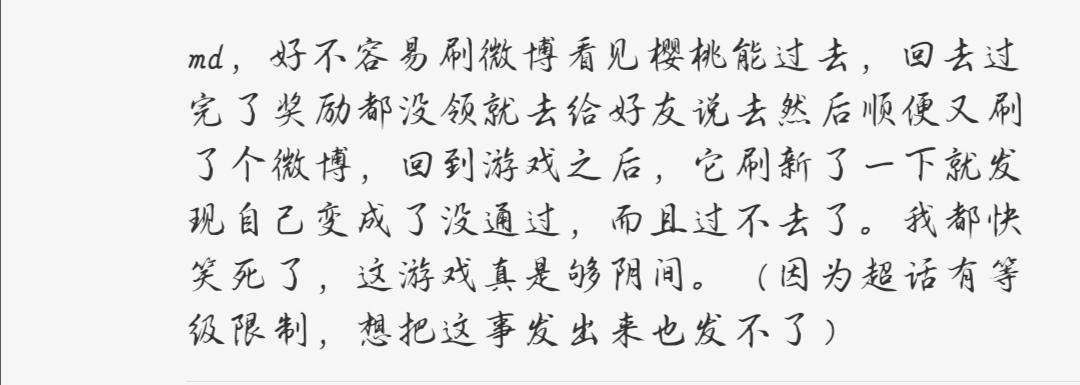 md，好不容易刷微博看见樱桃能过去，回去过
完了奖励都没领就去给好友说去然后顺便又刷
了个微博，回到游戏之后，它刷新了一下就发
现自己变成了没通过，而且过不去了。我都快
笑死了，这游戏真是够阴间。（因为超话有等
级限制，想把这事发出来也发不了）